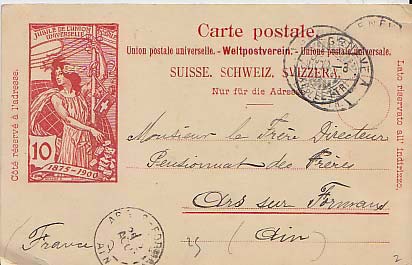 JUBILÉ DE L'UNION POSTALE
UNIVERSELLE
10
1875-1900
Carte postale.
Union postale universelle. - Weltpostverein. - Unione postale universale.
SUISSE. SCHWEIZ. SVIZZERA.
Nur für die Adresse
Côté réservé à l'adresse.
Lato riservato all' indirizzo.
GENÈVE
Monsieur le Frère Directeur
Pensionnat des Frères
Ars sur Formans
(Ain)
(France)
AIN
2